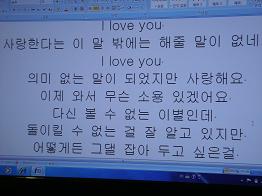 I love you
사랑한다는 이 말 밖에는 해줄 말이 없네
I love you
의미 없는 말이 되었지만 사랑해요
이제 와서 무슨 소용 있겠어요
다신 볼 수 없는 이별인데
돌이킬 수 없는 걸 잘 알고 있지만
어떻게든 그댈 잡아 두고 싶은걸